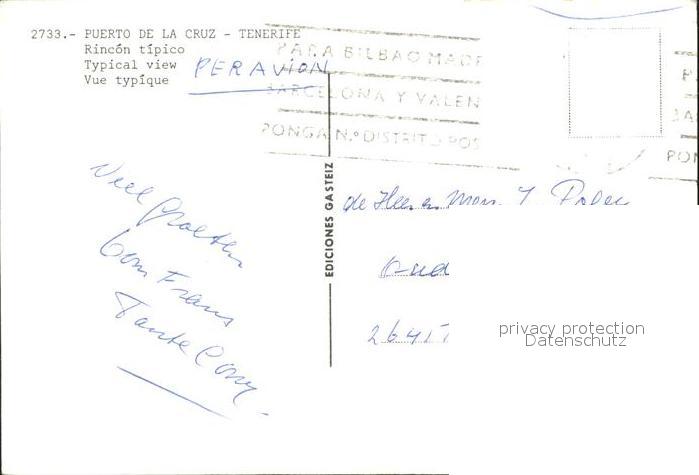 2733.- PUERTO DE LA CRUZ - TENERIFE
Rincón típico
Typical view
Vue typíque
PER AVION
PARA BILBAO MADR
BARCELONA Y VALEN
PONGA N.º DISTRITO POS
P
BA
PON
EDICIONES GASTEIZ
Veel groeten
Oom Frans
Tante Cony
de Heer en Mevr.
privacy protection
Datenschutz